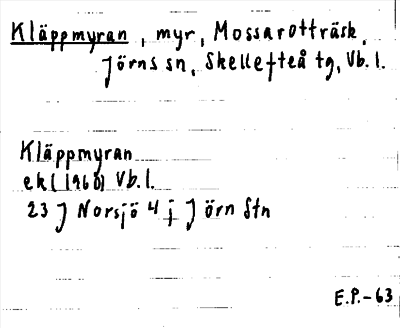 Kläppmyran, myr, Mossarotträsk,
Jörns sn, Skellefteå tg, Vb. l.
Kläppmyran
ek (1960) Vb. l.
23 J Norsjö 4 j Jörn Stn
E.P.-63